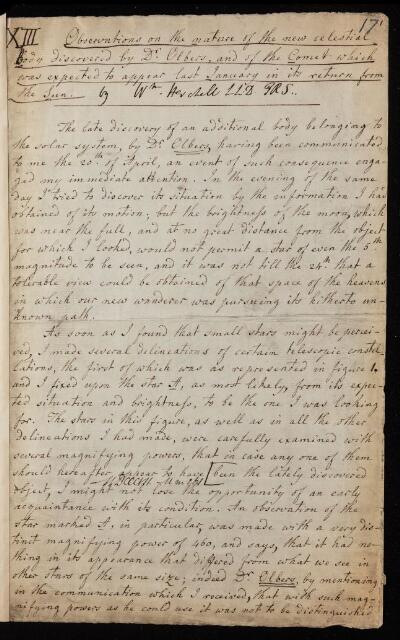 17
XIII Observations on the nature of the new celestial
Body discovered by Dr. Olbers, and of the Comet which
was expected to appear last January in its return from
the Sun. by Wm. Herschell LLD FRS..
The late discovery of an additional body belonging to
the solar system, by Dr. Olbers, having been communicated
to me the 20th of April, an event of such consequence enga-
ged my immediate attention. In the evening of the same
day I tried to discover its situation by the information I had
obtained of its motion; but the brightness of the moon, which
was near the full, and at no great distance from the object
for which I looked, would not permit a star of even the 5th
magnitude to be seen, and it was not till the 24th that a
tolerable view could be obtained of that space of the heavens
in which our new wanderer was pursuing its hitherto un-
known path.
As soon as I found that small stars might be percei-
ved, I made several delineations of certain telescopic constel-
lations, the first of which was as represented in figure 1.
and I fixed upon the star A, as most likely, from its expec-
ted situation and brightness, to be the one I was looking
for. The stars in this figure, as well as in all the other
delineations I had made, were carefully examined with
several magnifying powers, that in case any one of them
should hereafter appear to have [been the lately discovered
object, I might not lose the opportunity of an early
acquaintance with its condition. An observation of the
star marked A, in particular, was made with a very dis-
tinct magnifying power of 460, and says, that it had no-
thing in its appearance that differed from what we see in
other stars of the same size; indeed Dr. Olbers, by mentioning
in the communication which I received, that with such mag-
nifying powers as he could use it was not to be distinguished